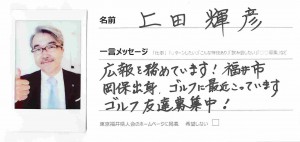 名前 上田 輝彦
一言メッセージ
広報を務めています！福井市
岡保出身、ゴルフに最近こっています
ゴルフ友達募集中！
東京福井県人会のホームページに掲載 希望しない □